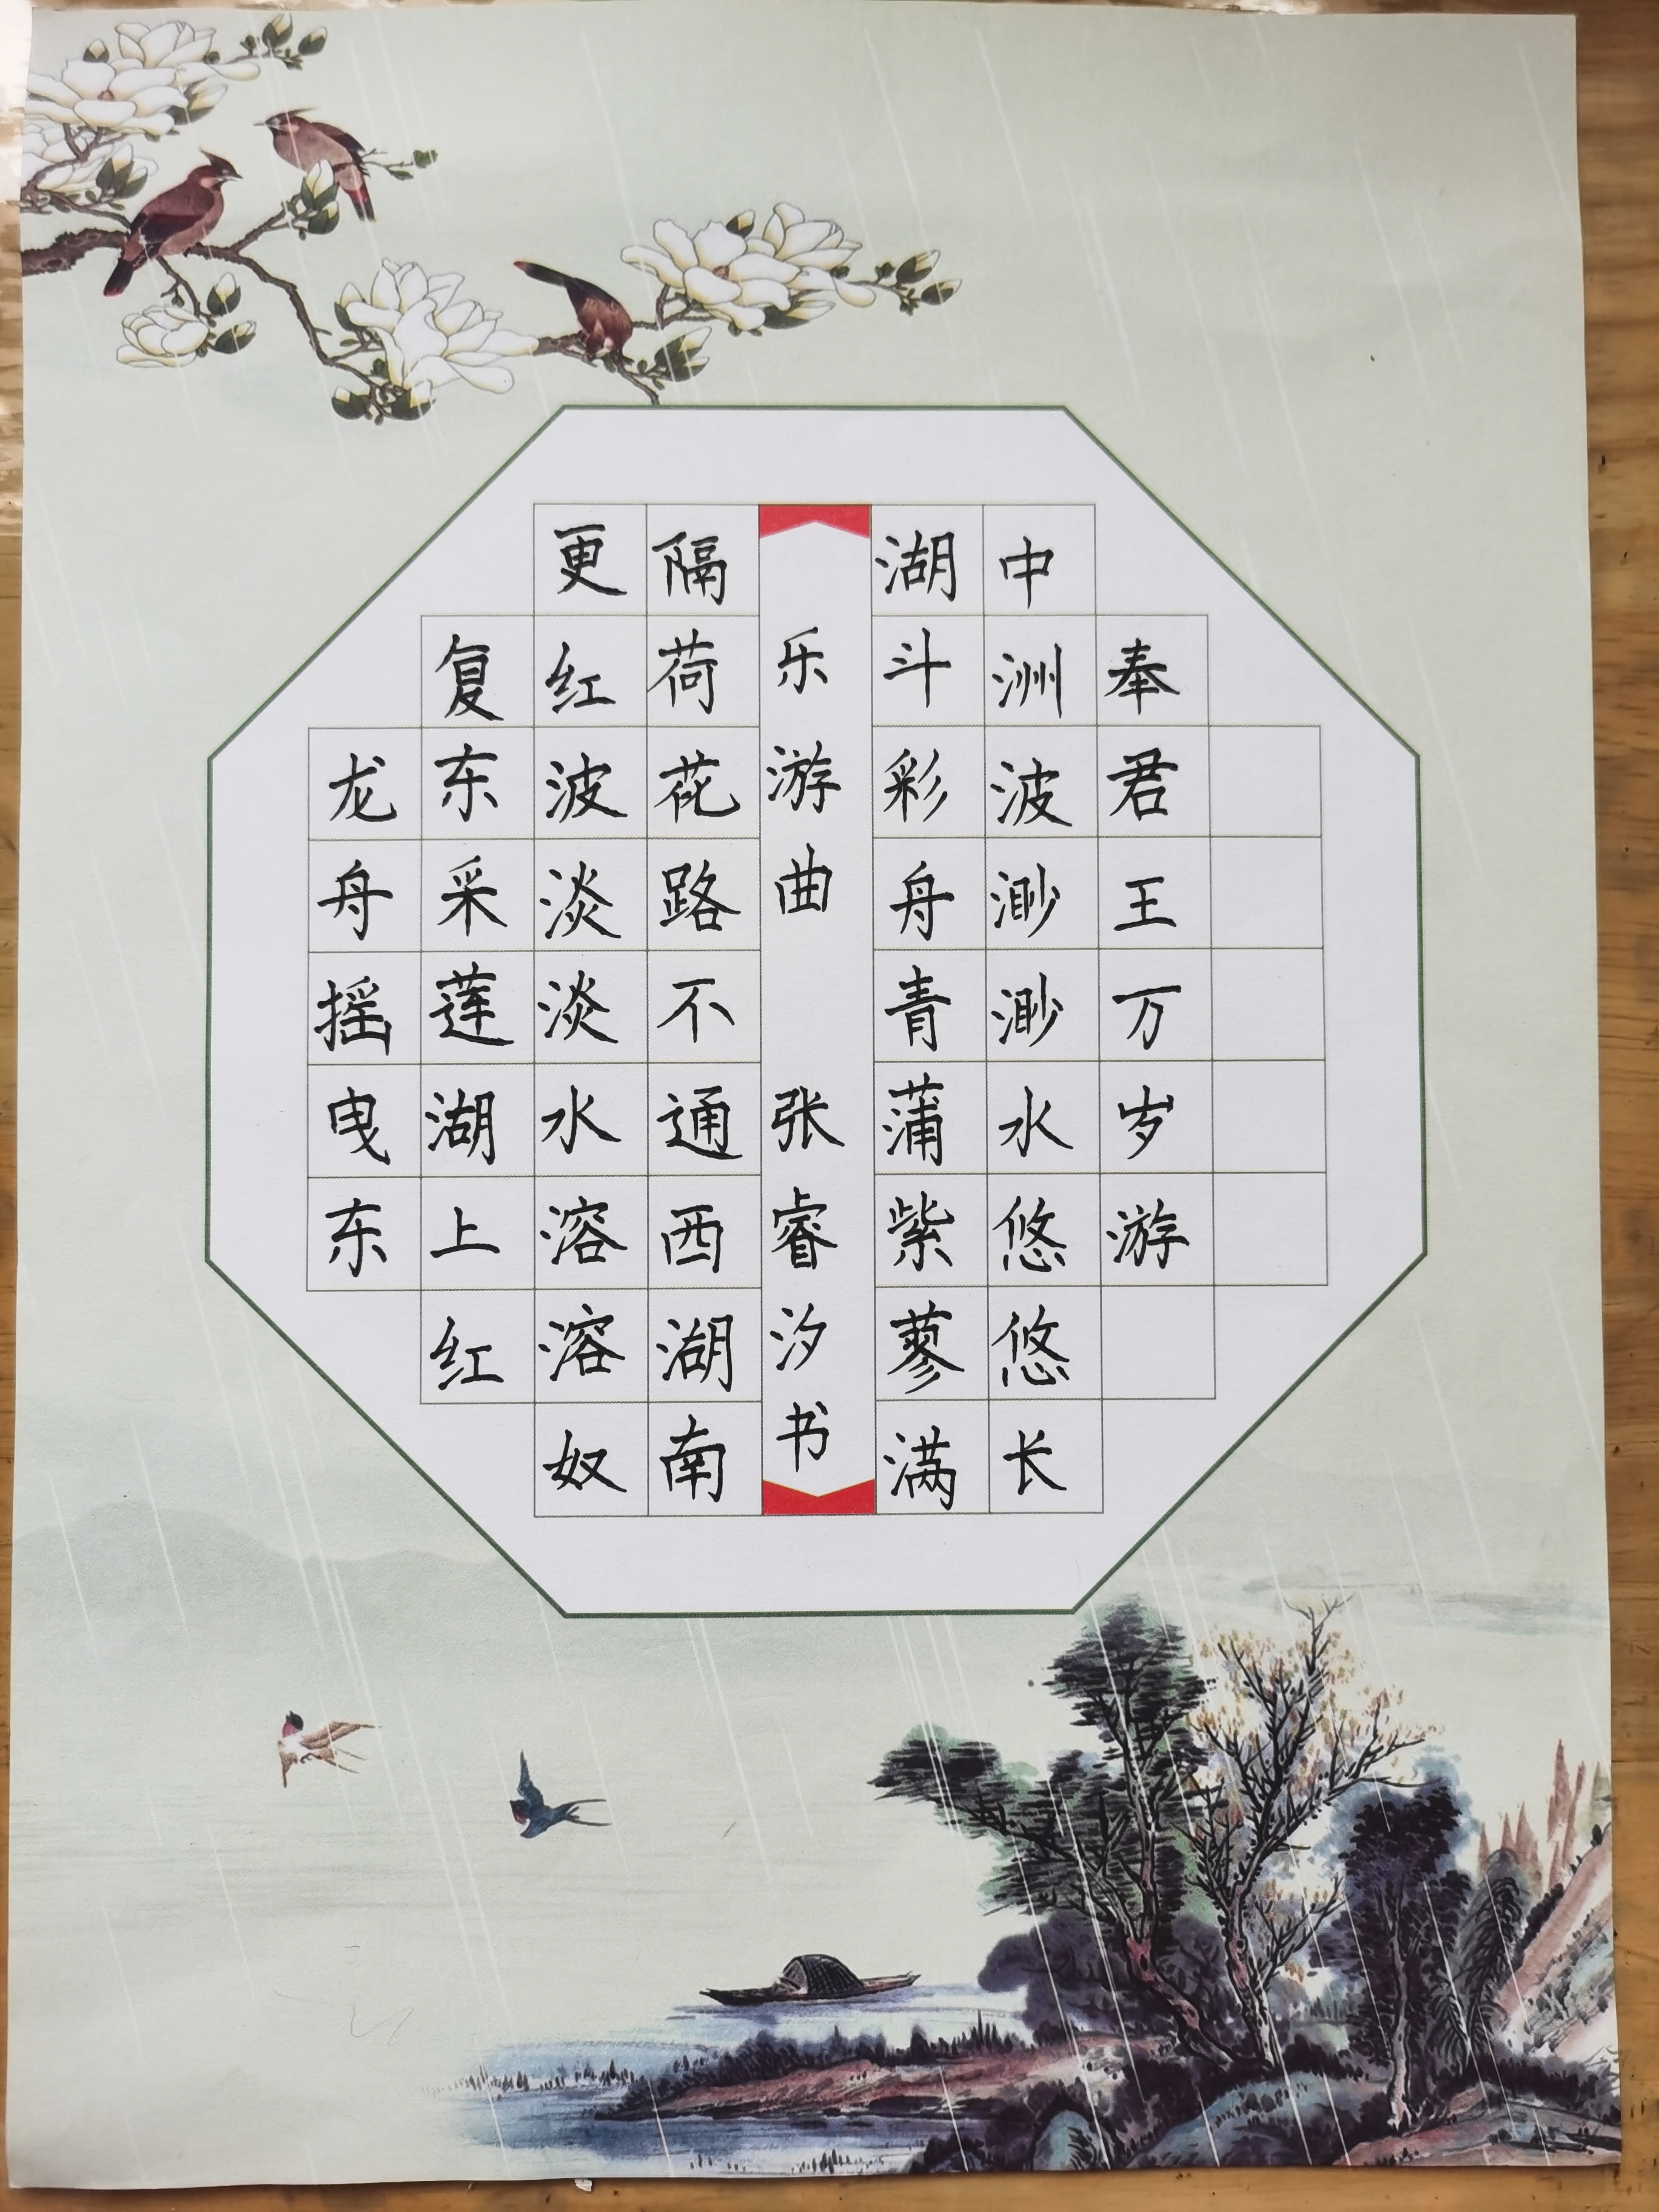 龙舟摇曳东
复东采莲湖上红
更红波淡淡水溶溶奴
隔荷花路不通西湖南
乐游曲 张睿汐书
湖斗彩舟青蒲紫蓼满
中洲波渺渺水悠悠长
奉君王万岁游